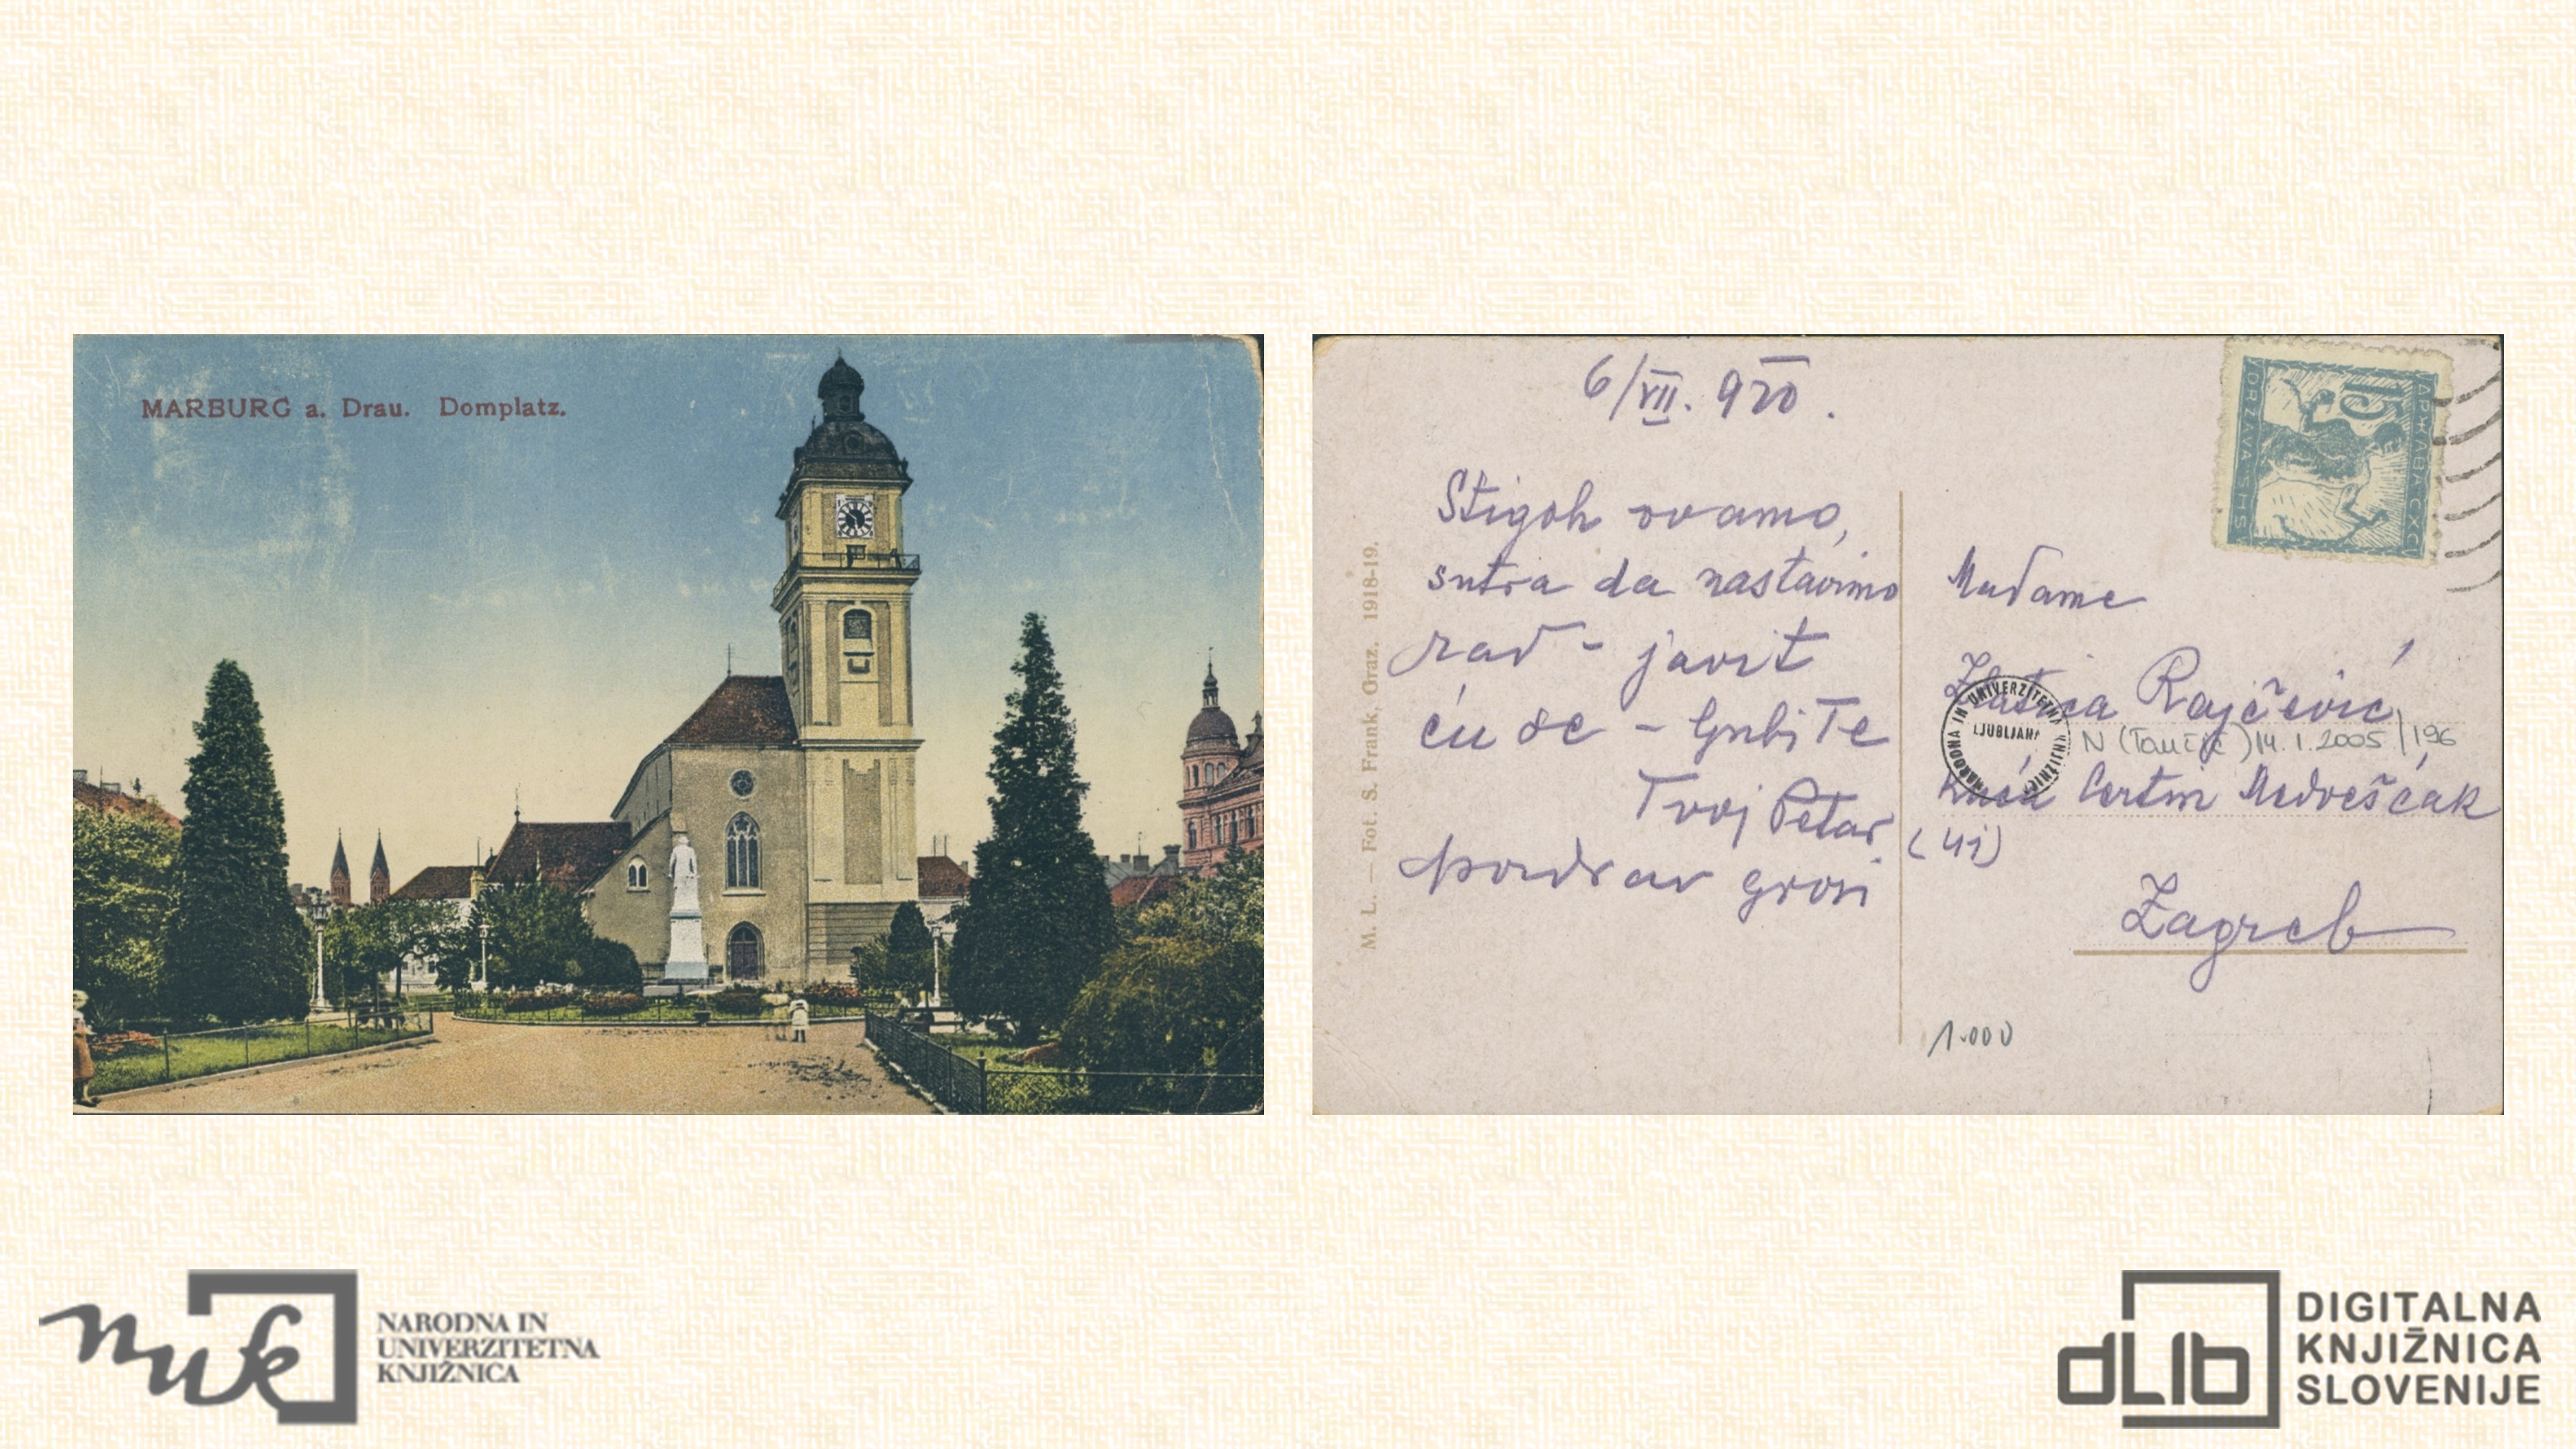 MARBURG a. Drau. Domplatz.
6/VII. 920.
Stigoh ovamo,
sutra da nastavimo
rad - javit
ću se - ljubi Te
Tvoj Petar
pozdrav grosi
M. L. — Fot. S. Frank, Graz. 1918-19.
15
DRŽAVA SHS
ДРЖАВА СХС
Madame
Zlatica Rajčević
kuća Medvešćak
(41)
Zagreb
NARODNA IN UNIVERZITETNA KNJIŽNICA
LJUBLJANA
14.1.2005/196
1.000
nuk
NARODNA IN
UNIVERZITETNA
KNJIŽNICA
dLib
DIGITALNA
KNJIŽNICA
SLOVENIJE